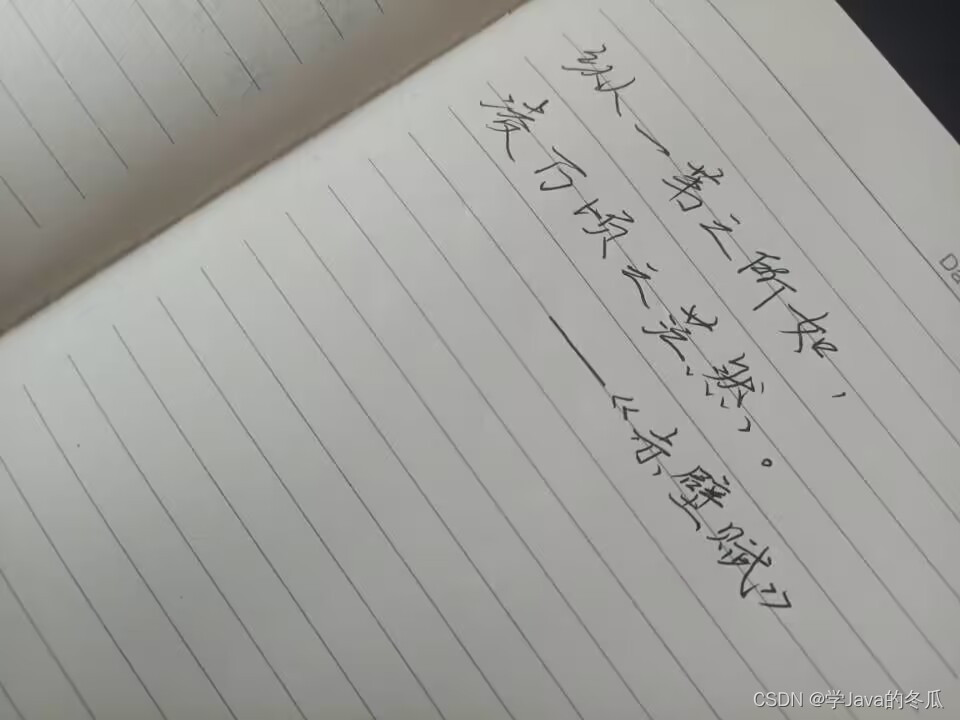 纵一苇之所如，
凌万顷之茫然。
——《赤壁赋》
Da
CSDN @学Java的冬瓜